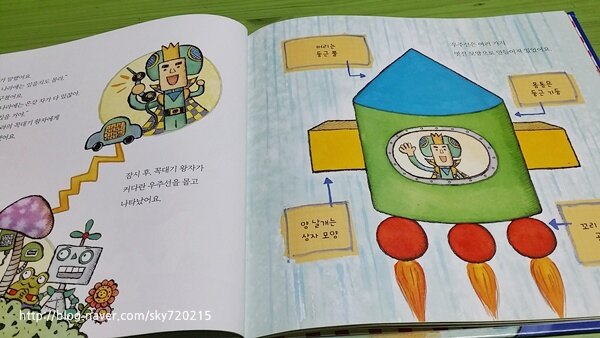 말했어요.
나라에는 있을지도 몰라."
나라에는 온갖 자가 다 있잖아.
있을 거야."
꼭대기 왕자에게
잠시 후, 꼭대기 왕자가
커다란 우주선을 몰고
나타났어요.
우주선은 여러 가지
멋진 모양으로 만들어져 있었어요.
머리는
둥근 뿔
몸통은
둥근 기둥
양 날개는
상자 모양
꼬리
http://blog-naver.com/sky720215